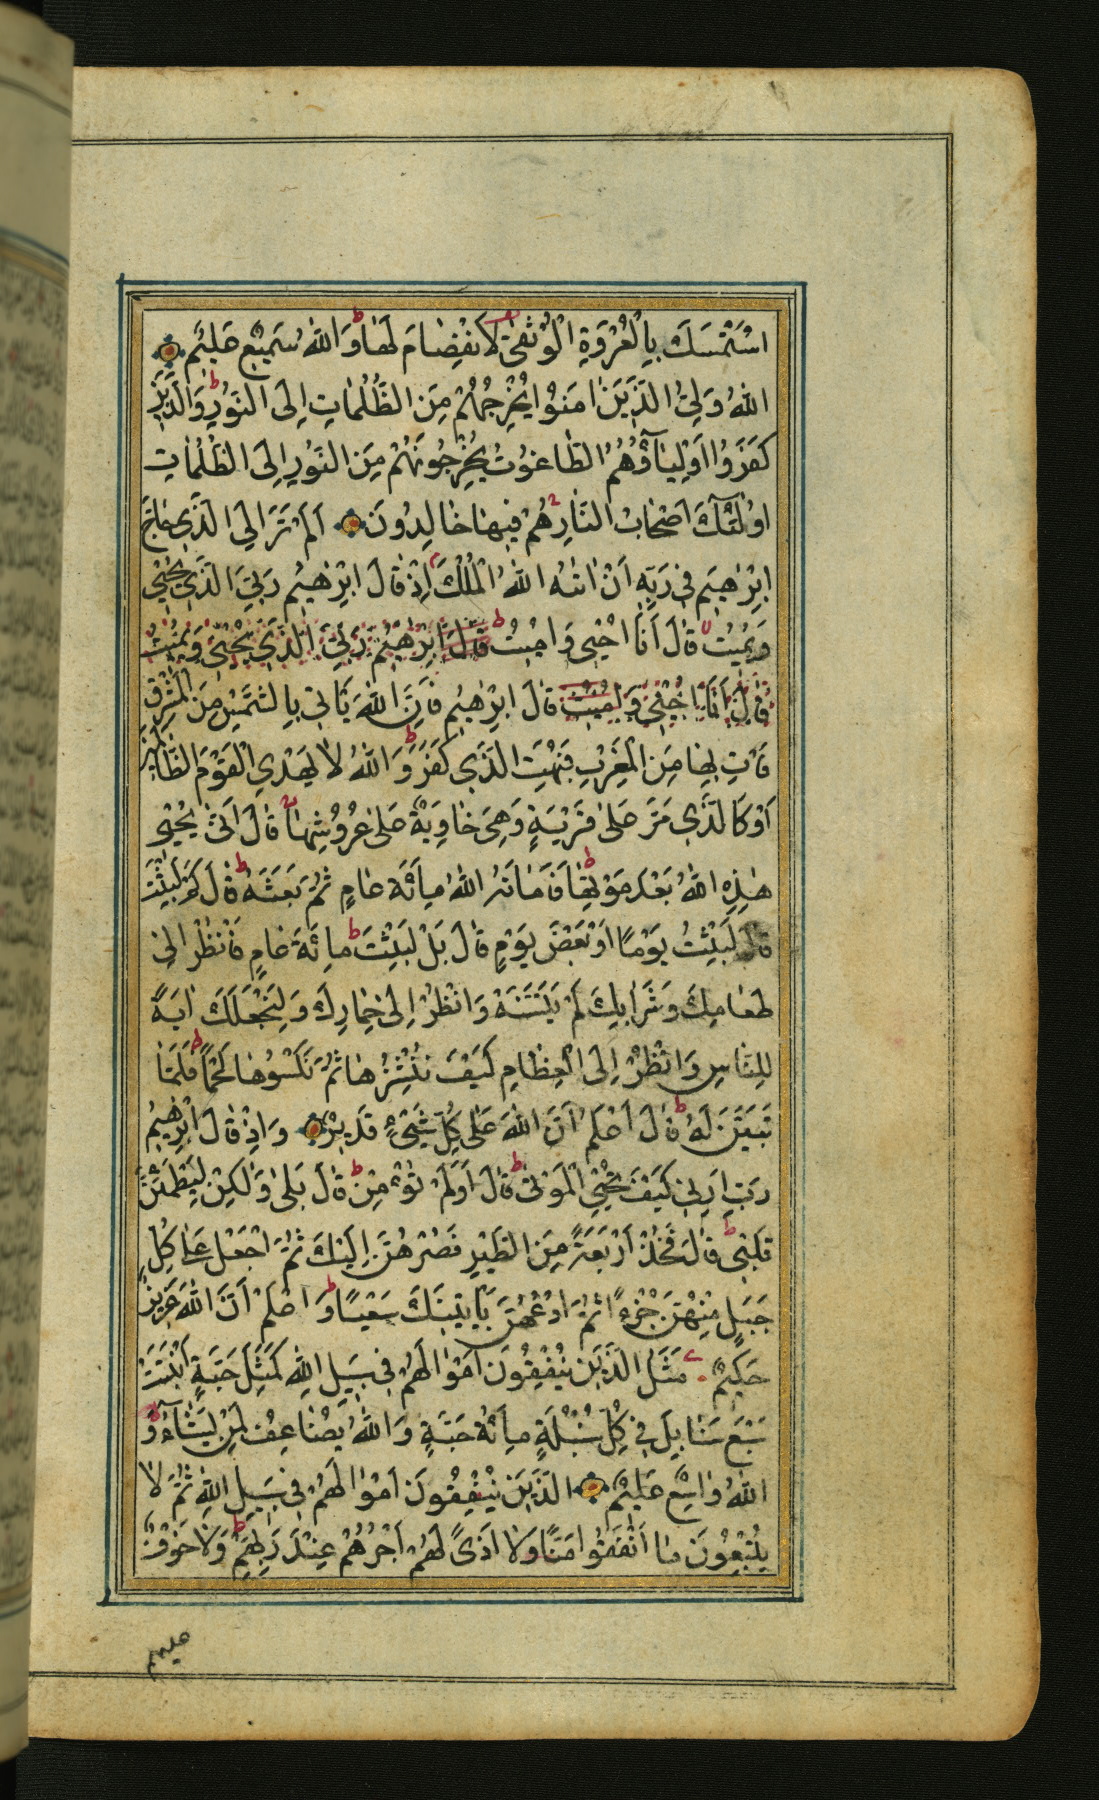 اسْتَمْسَكَ بِالْعُرْوَةِ الْوُثْقىٰ لَا انْفِصٰامَ لَهٰا وَاللّٰهُ سَمِيعٌ عَلِيمٌ
اللّٰهُ وَلِيُّ الَّذِينَ اٰمَنُوا يُخْرِجُهُمْ مِنَ الظُّلُمٰاتِ إِلَى النُّورِ وَالَّذِينَ
كَفَرُوا أَوْلِيٰآؤُهُمُ الطّٰاغُوتُ يُخْرِجُونَهُمْ مِنَ النُّورِ إِلَى الظُّلُمٰاتِ
اوُلٰئِكَ أَصْحٰابُ النّٰارِ هُمْ فِيهٰا خٰالِدُونَ أَلَمْ تَرَ إِلَى الَّذِي حٰاجَّ
إِبْرٰهِيمَ فِي رَبِّهِ أَنْ اٰتٰىهُ اللّٰهُ الْمُلْكَ إِذْ قٰالَ إِبْرٰهِيمُ رَبِّيَ الَّذِي يُحْيِي
وَيُمِيتُ قٰالَ أَنَا احْيِي وَامِيتُ قٰالَ إِبْرٰهِيمُ رَبِّيَ الَّذِي يُحْيِي وَيُمِيتُ
قٰالَ أَنَا احْيِي وَامِيتُ قٰالَ إِبْرٰهِيمُ فَإِنَّ اللّٰهَ يَأْتِي بِالشَّمْسِ مِنَ الْمَشْرِقِ
فَأْتِ بِهٰا مِنَ الْمَغْرِبِ فَبُهِتَ الَّذِي كَفَرَ وَاللّٰهُ لَا يَهْدِي الْقَوْمَ الظّٰالِمِينَ
أَوْ كَالَّذِي مَرَّ عَلىٰ قَرْيَةٍ وَهِيَ خٰاوِيَةٌ عَلىٰ عُرُوشِهٰا قٰالَ أَنّٰى يُحْيِي
هٰذِهِ اللّٰهُ بَعْدَ مَوْتِهٰا فَأَمٰاتَهُ اللّٰهُ مِائَةَ عٰامٍ ثُمَّ بَعَثَهُ قٰالَ كَمْ لَبِثْتَ
قٰالَ لَبِثْتُ يَوْمًا أَوْ بَعْضَ يَوْمٍ قٰالَ بَلْ لَبِثْتَ مِائَةَ عٰامٍ فَانْظُرْ إِلىٰ
طَعٰامِكَ وَشَرٰابِكَ لَمْ يَتَسَنَّهْ وَانْظُرْ إِلىٰ حِمٰارِكَ وَلِنَجْعَلَكَ اٰيَةً
لِلنّٰاسِ وَانْظُرْ إِلَى الْعِظٰامِ كَيْفَ نُنْشِزُهٰا ثُمَّ نَكْسُوهٰا لَحْمًا فَلَمّٰا
تَبَيَّنَ لَهُ قٰالَ أَعْلَمُ أَنَّ اللّٰهَ عَلىٰ كُلِّ شَيْءٍ قَدِيرٌ وَإِذْ قٰالَ إِبْرٰهِيمُ
رَبِّ أَرِنِي كَيْفَ تُحْيِي الْمَوْتىٰ قٰالَ أَوَلَمْ تُؤْمِنْ قٰالَ بَلىٰ وَلٰكِنْ لِيَطْمَئِنَّ
قَلْبِي قٰالَ فَخُذْ أَرْبَعَةً مِنَ الطَّيْرِ فَصُرْهُنَّ إِلَيْكَ ثُمَّ اجْعَلْ عَلىٰ كُلِّ
جَبَلٍ مِنْهُنَّ جُزْءًا ثُمَّ ادْعُهُنَّ يَأْتِينَكَ سَعْيًا وَاعْلَمْ أَنَّ اللّٰهَ عَزِيزٌ
حَكِيمٌ مَثَلُ الَّذِينَ يُنْفِقُونَ أَمْوٰالَهُمْ فِي سَبِيلِ اللّٰهِ كَمَثَلِ حَبَّةٍ أَنْبَتَتْ
سَبْعَ سَنٰابِلَ فِي كُلِّ سُنْبُلَةٍ مِائَةُ حَبَّةٍ وَاللّٰهُ يُضٰاعِفُ لِمَنْ يَشٰآءُ وَ
اللّٰهُ وٰاسِعٌ عَلِيمٌ الَّذِينَ يُنْفِقُونَ أَمْوٰالَهُمْ فِي سَبِيلِ اللّٰهِ ثُمَّ لَا
يُتْبِعُونَ مٰا أَنْفَقُوا مَنًّا وَلَا أَذىً لَهُمْ أَجْرُهُمْ عِنْدَ رَبِّهِمْ وَلَا خَوْفٌ
عليهم